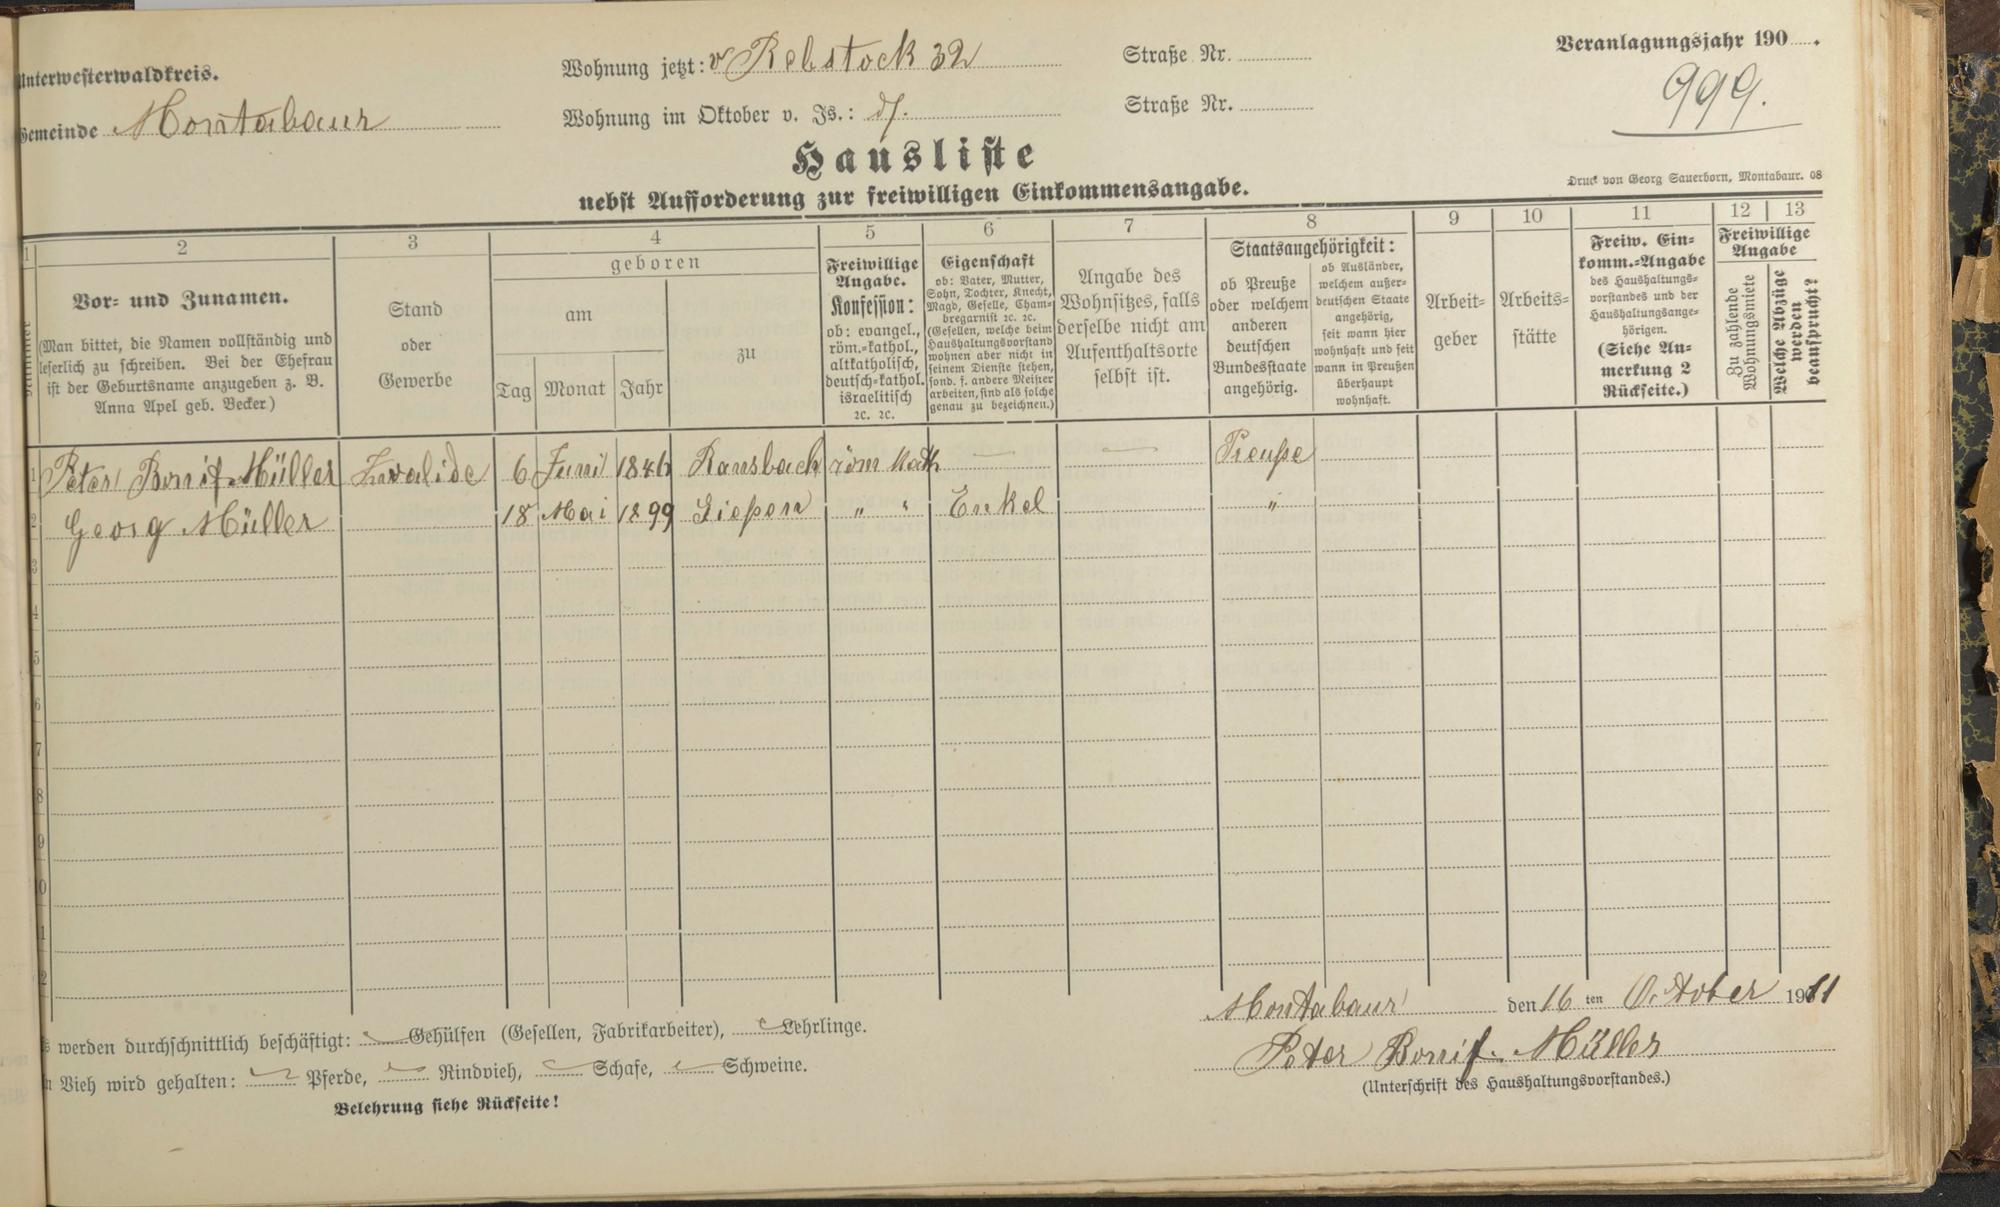 Unterwesterwaldkreis.
Gemeinde Montabaur
Wohnung jetzt: v Rebstock 32
Straße Nr.
Wohnung im Oktober v. Js.:
Straße Nr.
Veranlagungsjahr 190 .
999.
Hausliste
nebst Aufforderung zur freiwilligen Einkommensangabe.
Druck von Georg Sauerborn, Montabaur. 08
1
2
3
4
5
6
7
8
9
10
11
12
13
Vor- und Zunamen.
(Man bittet, die Namen vollständig und
leserlich zu schreiben. Bei der Ehefrau
ist der Geburtsname anzugeben z. B.
Anna Apel geb. Becker)
Stand
oder
Gewerbe
geboren
am
Tag
Monat
Jahr
zu
Freiwillige
Angabe.
Konfession:
ob: evangel.,
röm.-kathol.,
altkatholisch,
deutsch-kathol.
israelitisch
ꝛc. ꝛc.
Eigenschaft
ob: Vater, Mutter,
Sohn, Tochter, Knecht,
Magd, Geselle, Cham-
bregarnist ꝛc. ꝛc.
(Gesellen, welche beim
Haushaltungsvorstand
wohnen aber nicht in
seinem Dienste stehen,
sond. f. andere Meister
arbeiten, sind als solche
genau zu bezeichnen.)
Angabe des
Wohnsitzes, falls
derselbe nicht am
Aufenthaltsorte
selbst ist.
Staatsangehörigkeit:
ob Preuße
oder welchem
anderen
deutschen
Bundesstaate
angehörig.
ob Ausländer,
welchem außer-
deutschen Staate
angehörig,
seit wann hier
wohnhaft und seit
wann in Preußen
überhaupt
wohnhaft.
Arbeit-
geber
Arbeits-
stätte
Freiw. Ein-
komm.-Angabe
des Haushaltungs-
vorstandes und der
Haushaltungsange-
hörigen.
(Siehe An-
merkung 2
Rückseite.)
Freiwillige
Angabe
Zu zahlende
Wohnungsmiete
Welche Abzüge
werden
beansprucht?
1 Peter Bonif. Müller Invalide 6 Juni 1846 Ransbach röm Kath — — Preuße
2 Georg Müller 18 Mai 1899 Gießen " " Enkel "
3
4
5
6
7
8
9
0
1
2
Montabaur den 16 ten October 1911
Peter Bonif. Müller
(Unterschrift des Haushaltungsvorstandes.)
s werden durchschnittlich beschäftigt: Gehülfen (Gesellen, Fabrikarbeiter), Lehrlinge.
n Vieh wird gehalten: Pferde, Rindvieh, Schafe, Schweine.
Belehrung siehe Rückseite!